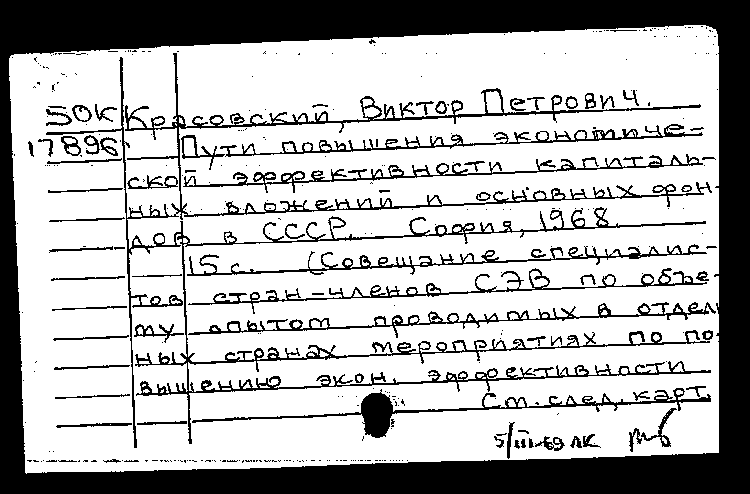 50К Красовский, Виктор Петрович.
17896 Пути повышения экономиче-
ской эффективности капиталь-
ных вложений и основных фон-
дов в СССР. София, 1968.
15 с. (Совещание специалис-
тов стран-членов СЭВ по объе-
му опытом проводимых в отдель
ных странах мероприятиях по по
вышению экон. эффективности
См. след. карт.
5/III-69 ЛК